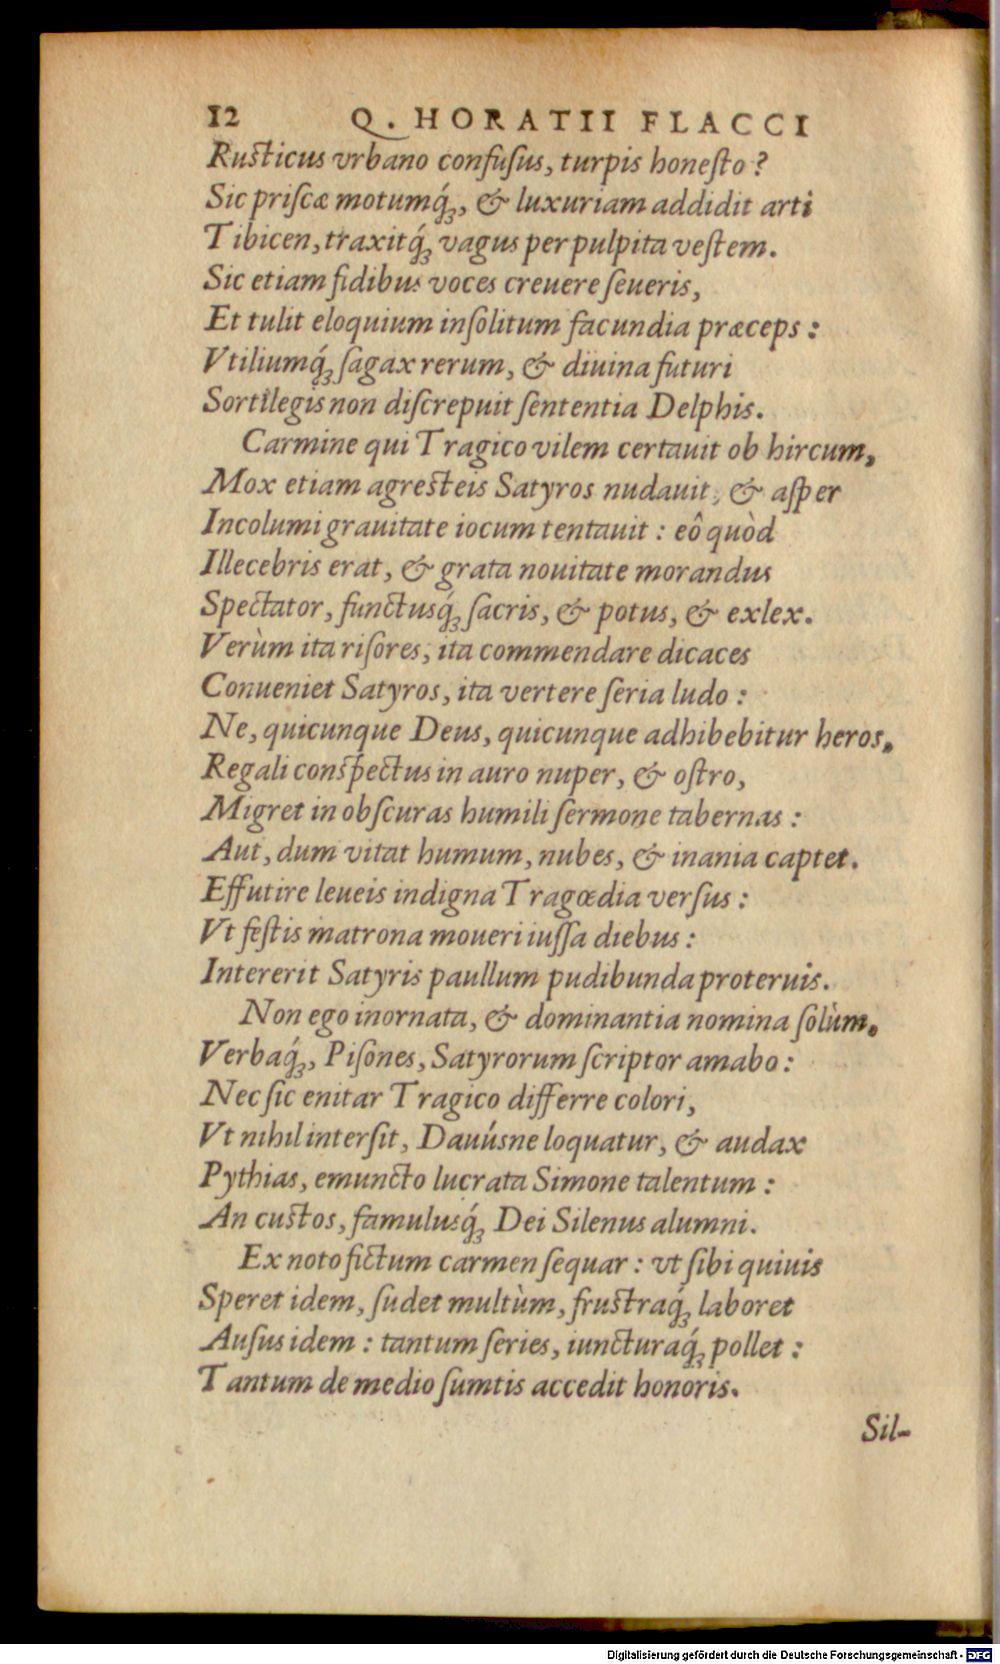 12 Q. HORATII FLACCI
Ruſticus vrbano confuſus, turpis honeſto?
Sic priſcæ motumq́ꝫ, & luxuriam addidit arti
Tibicen, traxitq́ꝫ vagus per pulpita veſtem.
Sic etiam fidibus voces creuere ſeueris,
Et tulit eloquium inſolitum facundia præceps:
Vtiliumq́ꝫ ſagax rerum, & diuina futuri
Sortilegis non diſcrepuit ſententia Delphis.
Carmine qui Tragico vilem certauit ob hircum,
Mox etiam agreſteis Satyros nudauit, & aſper
Incolumi grauitate iocum tentauit: eô quòd
Illecebris erat, & grata nouitate morandus
Spectator, functusq́ꝫ ſacris, & potus, & exlex.
Verùm ita riſores, ita commendare dicaces
Conueniet Satyros, ita vertere ſeria ludo:
Ne, quicunque Deus, quicunque adhibebitur heros,
Regali conſpectus in auro nuper, & oſtro,
Migret in obſcuras humili ſermone tabernas:
Aut, dum vitat humum, nubes, & inania captet.
Effutire leueis indigna Tragœdia verſus:
Vt feſtis matrona moueri iuſſa diebus:
Intererit Satyris paullum pudibunda proteruis.
Non ego inornata, & dominantia nomina ſolùm,
Verbaq́ꝫ, Piſones, Satyrorum ſcriptor amabo:
Nec ſic enitar Tragico differre colori,
Vt nihil interſit, Dauúsne loquatur, & audax
Pythias, emuncto lucrata Simone talentum:
An cuſtos, famulusq́ꝫ Dei Silenus alumni.
Ex noto fictum carmen ſequar: vt ſibi quiuis
Speret idem, ſudet multùm, fruſtraq́ꝫ laboret
Auſus idem: tantum ſeries, iuncturaq́ꝫ pollet:
Tantum de medio ſumtis accedit honoris.
Sil-
Digitalisierung gefördert durch die Deutsche Forschungsgemeinschaft - DFG